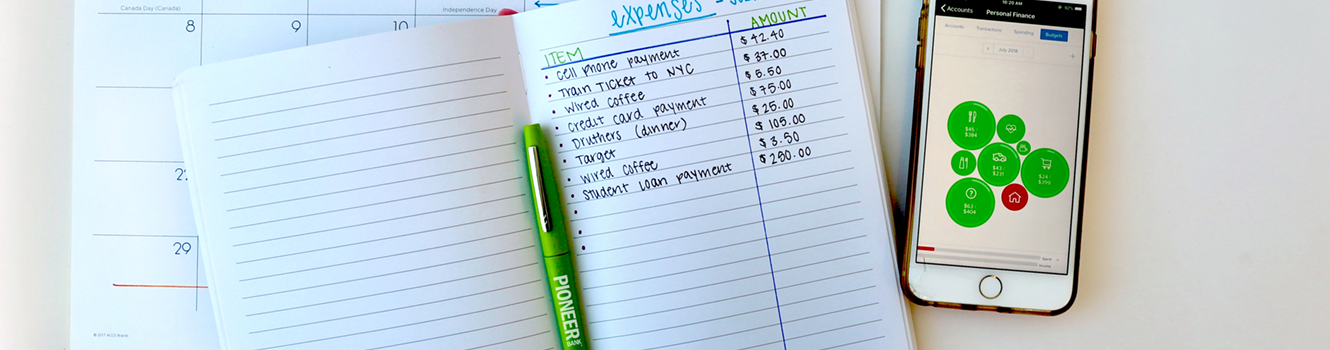 Canada Day (Canada)
Independence Day
8
9
10
22
29
© 2017 ACCO Brands
expenses -
ITEM AMOUNT
• cell phone payment $ 42.40
• Train Ticket to NYC $ 37.00
• wired coffee $ 5.50
• credit card payment $ 75.00
• Druthers (dinner) $ 25.00
• Target $ 105.00
• wired coffee $ 3.50
• student loan payment $ 250.00
PIONEER
BANK
10:20 AM
< Accounts Personal Finance
Accounts Transactions Spending Budgets
July 2018
$45 /
$384
$43 /
$231
$24 /
$399
$63 /
$404
Spent
Income